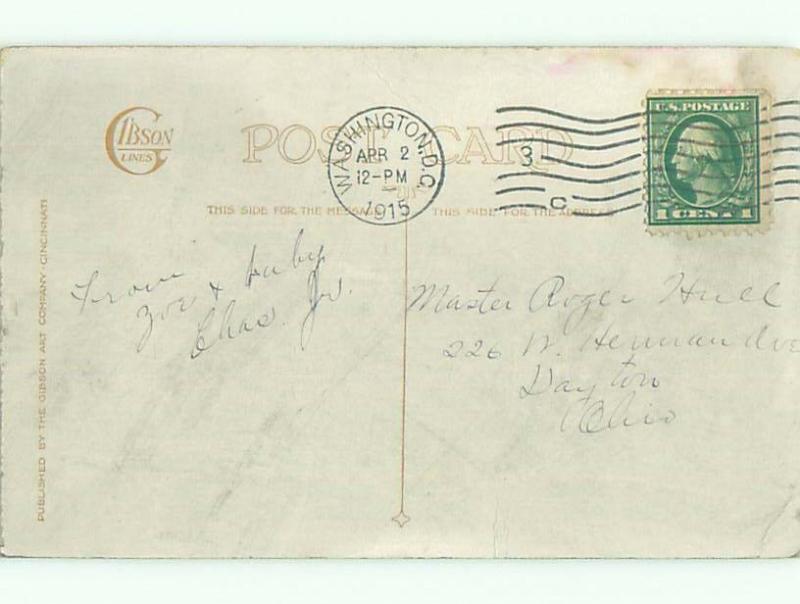 GIBSON
LINES
POST CARD
WASHINGTON, D.C.
APR 2
12-PM
1915
3
C
U.S. POSTAGE
1 CENT 1
THIS SIDE FOR THE MESSAGE
THIS SIDE FOR THE ADDRESS
PUBLISHED BY THE GIBSON ART COMPANY CINCINNATI
From
Zoe &
Chas. Jr.
Master Roger Huel
226 N. Herman Ave
Dayton
Ohio